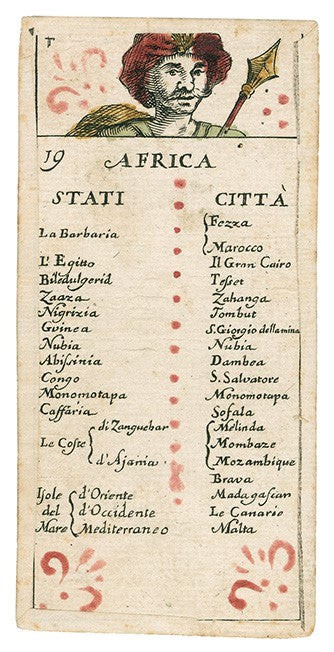 T
19 AFRICA
STATI CITTÀ
Fezza
La Barbaria
Marocco
L'Egitto Il Gran Cairo
Biledulgerid Tesset
Zaaza Zahanga
Nigrizia Tombut
Guinea S. Giorgio della mina
Nubia Nubia
Abissinia Dambea
Congo S. Salvatore
Monomotapa Monomotapa
Caffaria Sofala
di Zanguebar Melinda
Le Coste Mombaze
d'Ajania Mozambique
Brava
Isole d'Oriente Madagascar
del d'Occidente Le Canarie
Mare Mediterraneo Malta